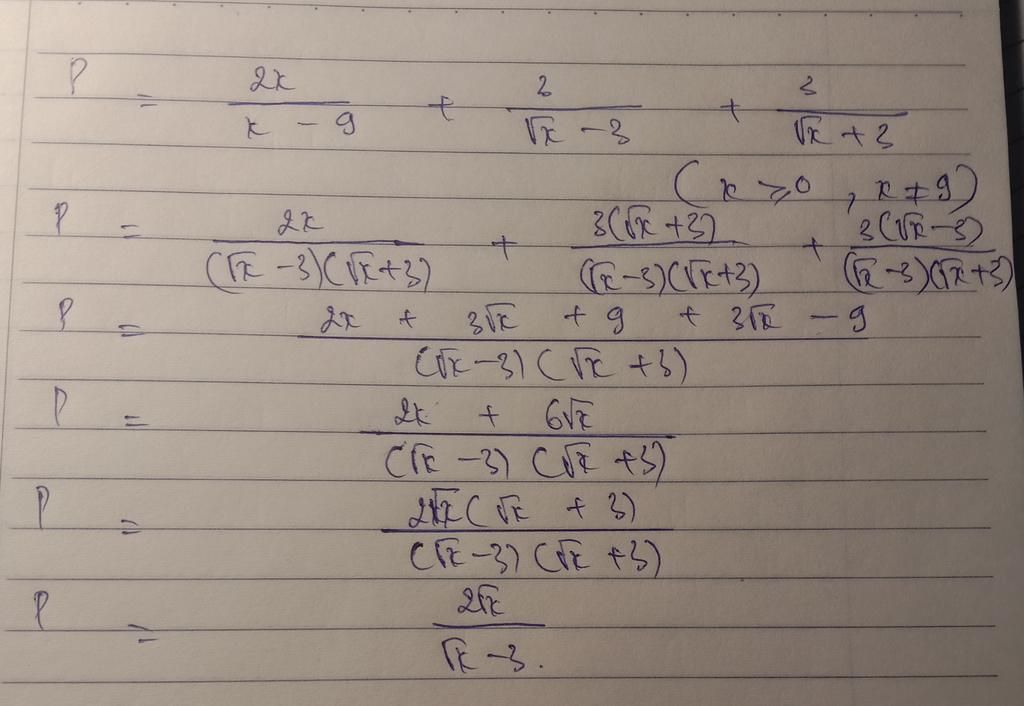 P = \frac{2x}{x - 9} + \frac{3}{\sqrt{x} - 3} + \frac{3}{\sqrt{x} + 3}
(x ⩾ 0, x ≠ 9)
P = \frac{2x}{(\sqrt{x} - 3)(\sqrt{x} + 3)} + \frac{3(\sqrt{x} + 3)}{(\sqrt{x} - 3)(\sqrt{x} + 3)} + \frac{3(\sqrt{x} - 3)}{(\sqrt{x} - 3)(\sqrt{x} + 3)}
P = \frac{2x + 3\sqrt{x} + 9 + 3\sqrt{x} - 9}{(\sqrt{x} - 3)(\sqrt{x} + 3)}
P = \frac{2x + 6\sqrt{x}}{(\sqrt{x} - 3)(\sqrt{x} + 3)}
P = \frac{2\sqrt{x}(\sqrt{x} + 3)}{(\sqrt{x} - 3)(\sqrt{x} + 3)}
P = \frac{2\sqrt{x}}{\sqrt{x} - 3}.